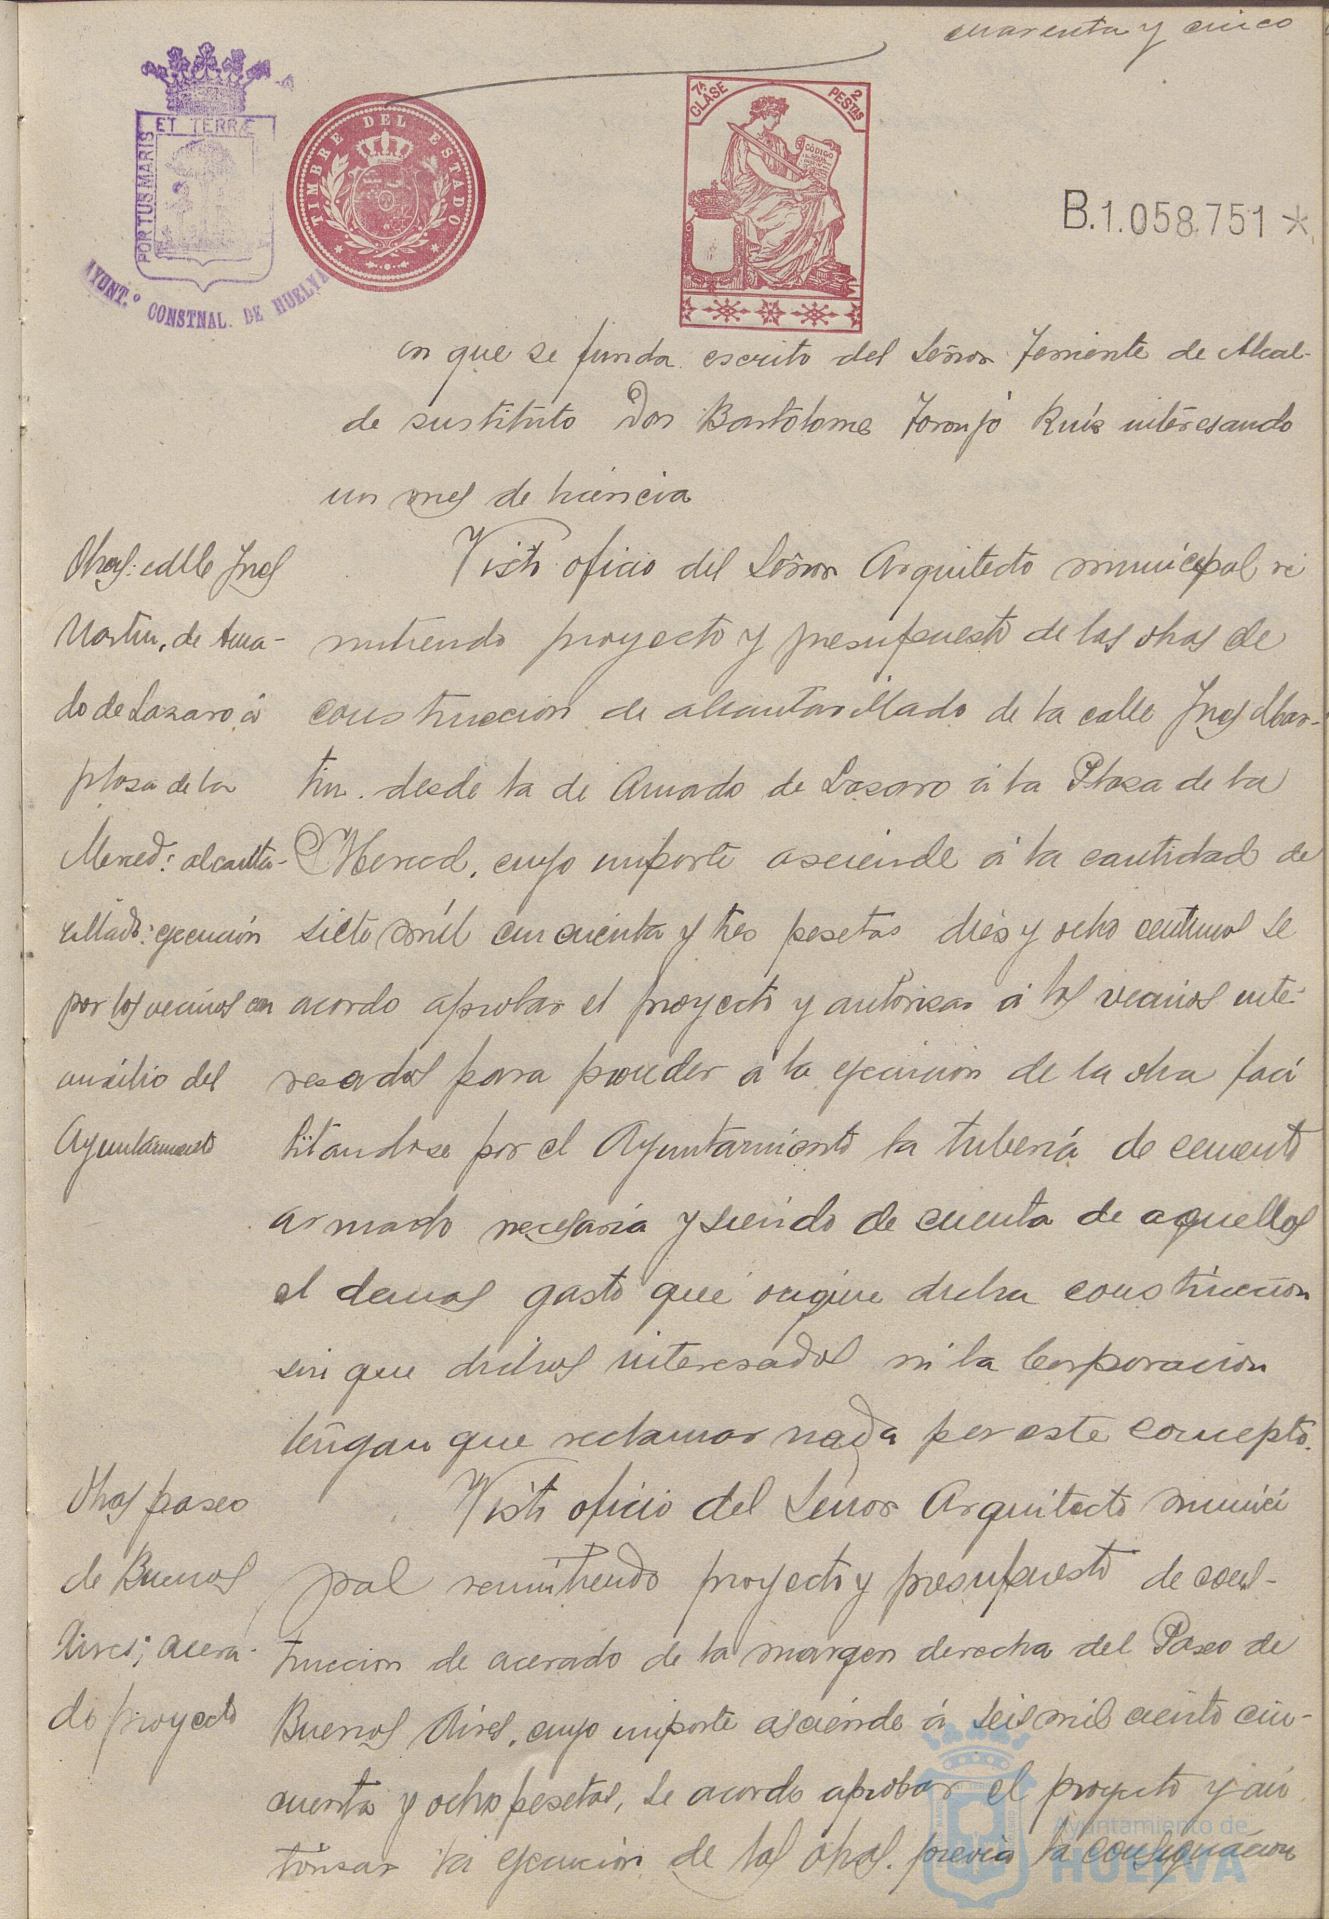 cuarenta y cinco
ET TERRÆ
PORTUS MARIS
AYUNT.º CONSTNAL. DE HUELVA
TIMBRE DEL ESTADO
7ª CLASE
2 PESTAS
CÓDIGO
B.1.058,751 *
en que se funda escrito del Señor Teniente de Alcal-
de sustituto Don Bartolome Toronjo Ruiz interesando
un mes de licencia
Obras: calle Ines
Martin, de Ama-
do de Lazaro á
plaza de la
Merced: alcanta-
rillado: ejecución
por los vecinos con
auxilio del
Ayuntamiento
Visto oficio del Señor Arquitecto municipal re
mitiendo proyecto y presupuesto de las obras de
construccion de alcantarillado de la calle Ines Mar-
tin desde la de Amado de Lazaro á la Plaza de la
Merced, cuyo importe asciende á la cantidad de
siete mil cincuenta y tres pesetas dies y ocho centimos se
acordo aprobar el proyecto y autorizar á los vecinos inte-
resados para proceder á la ejecucion de la obra faci
litandose por el Ayuntamiento la tuberia de cemento
armado necesaria y siendo de cuenta de aquellos
el demas gasto que origine dicha construccion
sin que dichos interesados ni la Corporacion
tengan que reclamar nada por este concepto.
Obras paseo
de Buenos
Aires; acera-
do proyecto
Visto oficio del Senor Arquitecto munici
pal remitiendo proyecto y presupuesto de cons-
truccion de acerado de la margen derecha del Paseo de
Buenos Aires, cuyo importe asciende á seis mil ciento cin-
cuenta y ocho pesetas, se acordo aprobar el proyecto y au
torizar la ejecucion de las obras previa la consignacion
Ayuntamiento de
HUELVA